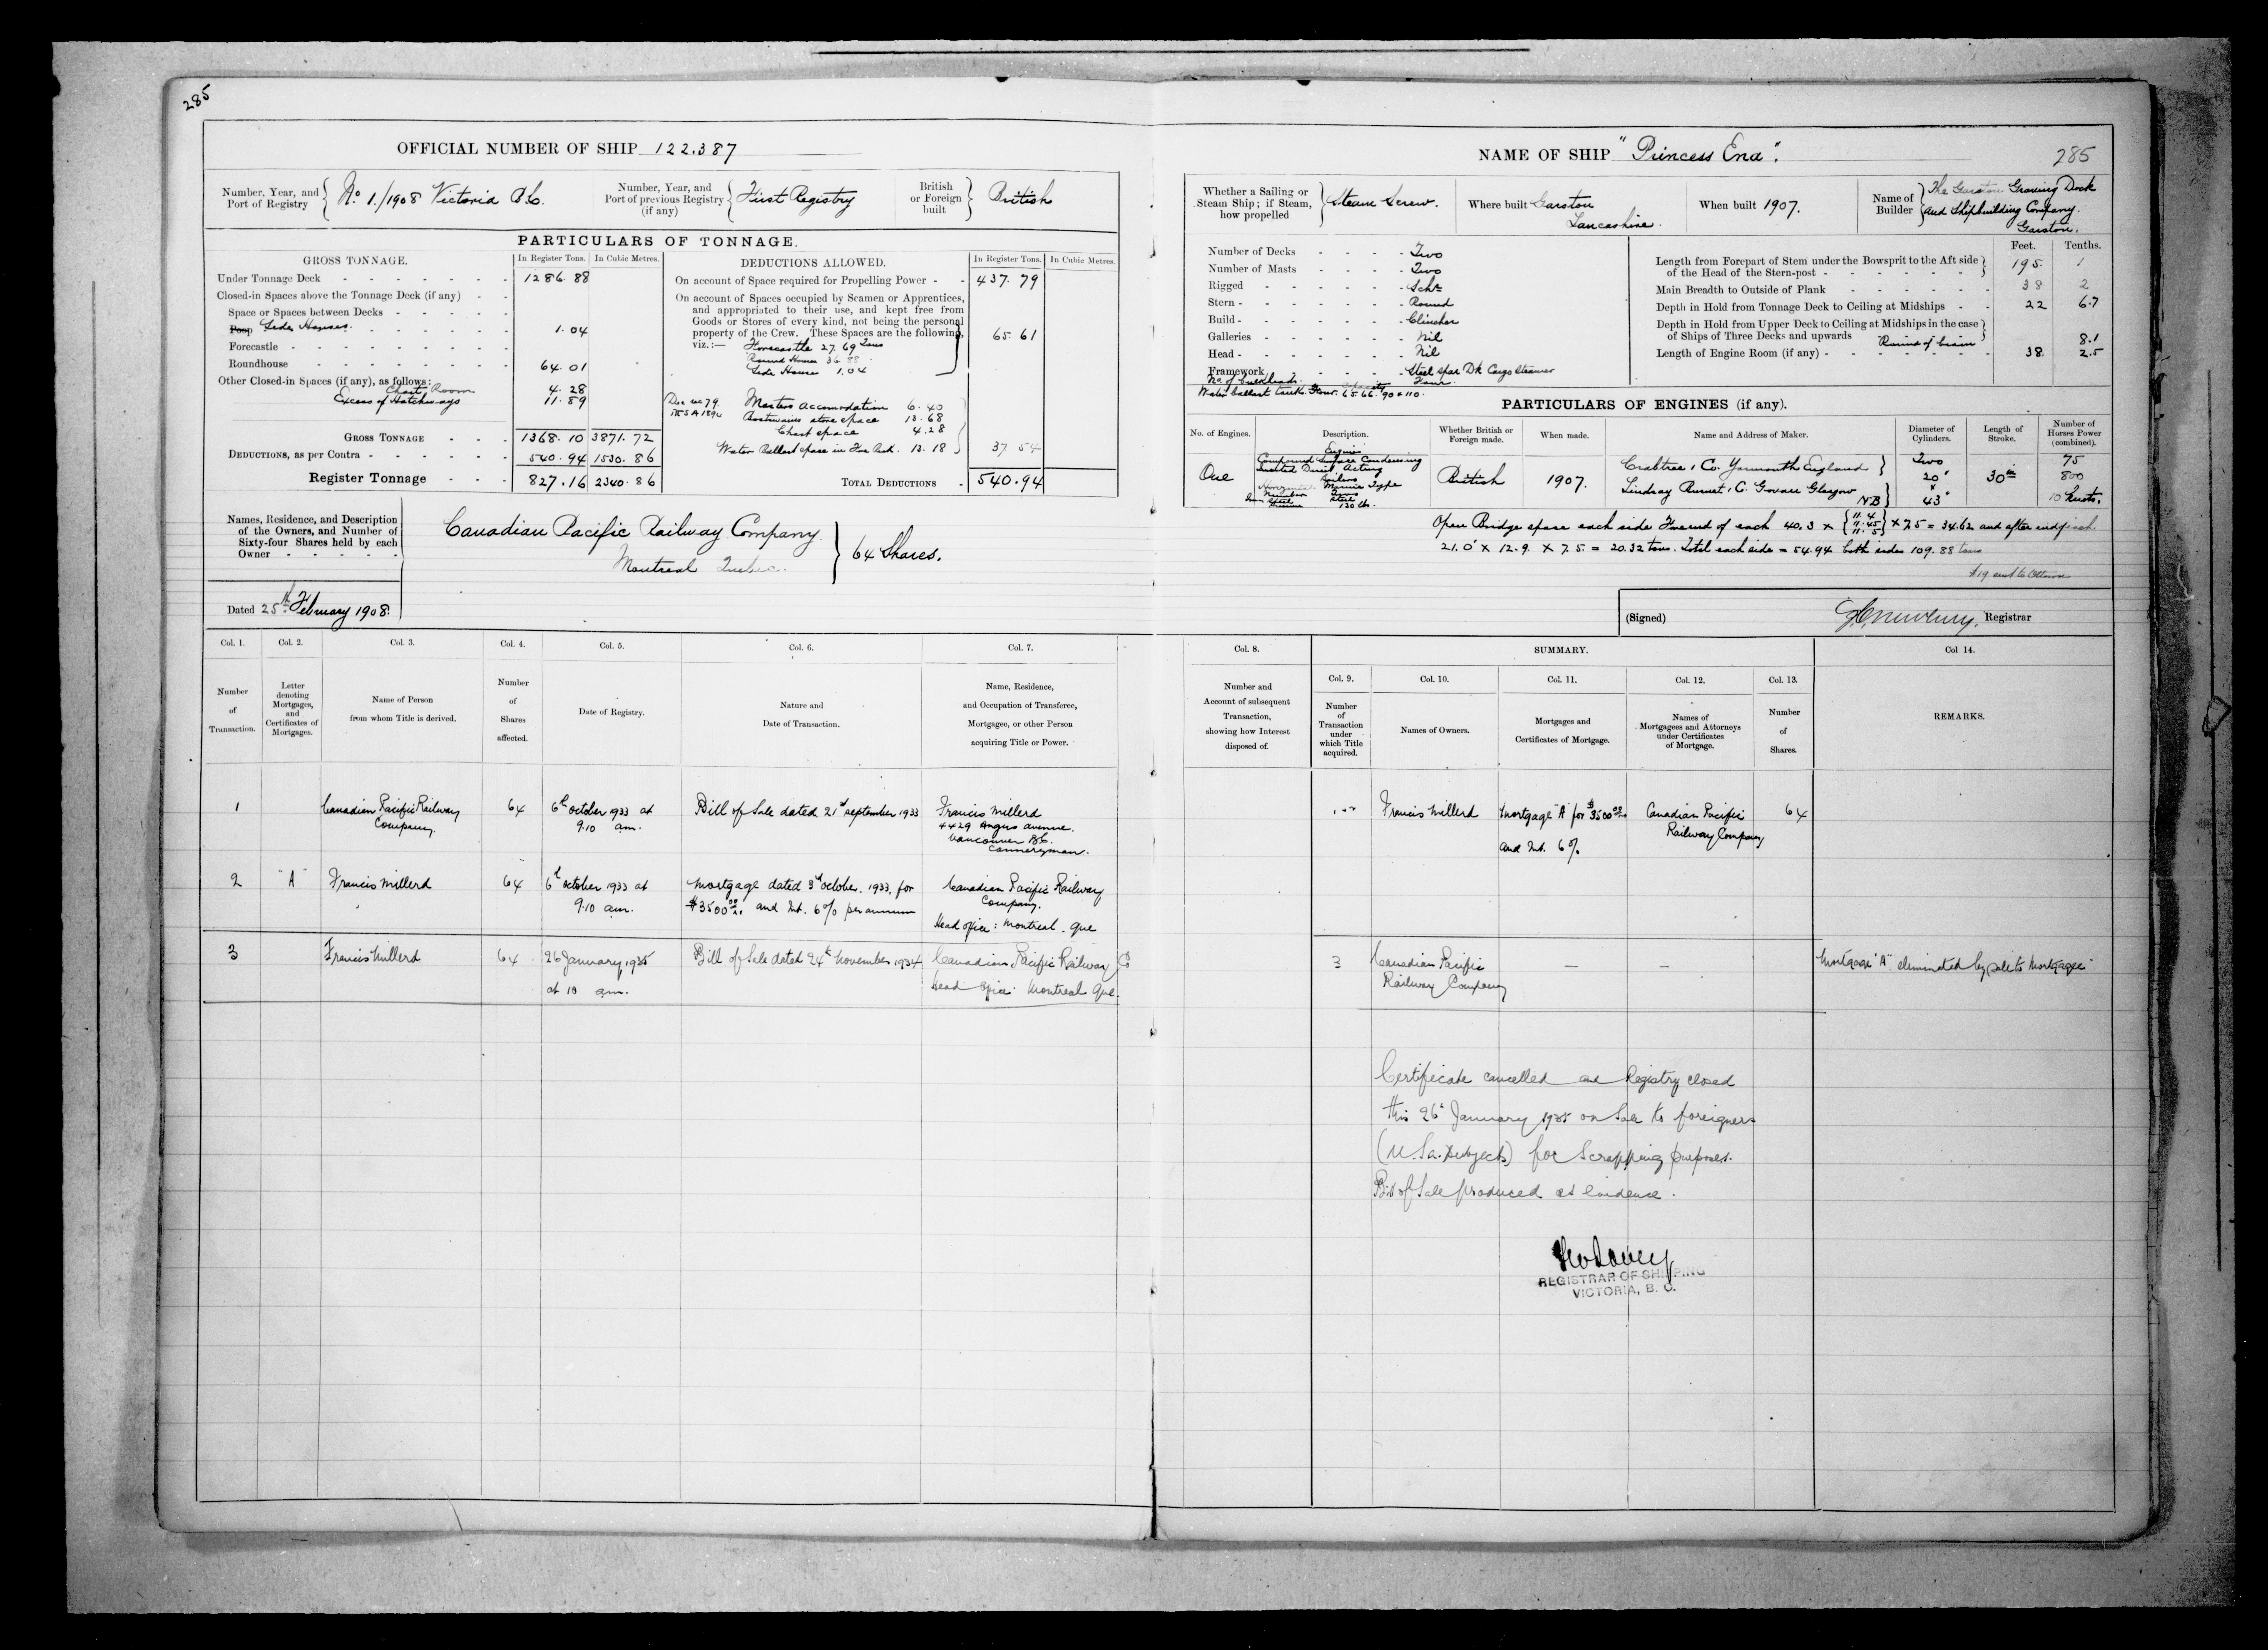 285
OFFICIAL NUMBER OF SHIP 122.387
Number, Year, and Port of Registry
No 1./1908 Victoria B.C.
Number, Year, and Port of previous Registry (if any)
First Registry
British or Foreign built
British
PARTICULARS OF TONNAGE.
GROSS TONNAGE.
In Register Tons.
In Cubic Metres.
Under Tonnage Deck 1286.88
Closed-in Spaces above the Tonnage Deck (if any)
Space or Spaces between Decks
Poop Side Houses. 1.04
Forecastle
Roundhouse 64.01
Other Closed-in Spaces (if any), as follows:
Chart Room 4.28
Excess of Hatchways 11.89
GROSS TONNAGE 1368.10 3871.72
DEDUCTIONS, as per Contra 540.94 1530.86
Register Tonnage 827.16 2340.86
DEDUCTIONS ALLOWED.
In Register Tons.
In Cubic Metres.
On account of Space required for Propelling Power 437.79
On account of Spaces occupied by Seamen or Apprentices,
and appropriated to their use, and kept free from
Goods or Stores of every kind, not being the personal
property of the Crew. These Spaces are the following,
viz.:— Forecastle 27.69 Tons 65.61
Round House 36.88
Side House 1.04
Masters Accomodation 6.40
Boatswains store space 13.68
Chart space 4.28
Water Ballast space in Fore Peak. 13.18
37.54
TOTAL DEDUCTIONS 540.94
Names, Residence, and Description
of the Owners, and Number of
Sixty-four Shares held by each
Owner
Canadian Pacific Railway Company
Montreal Quebec.
64 Shares.
Dated 25th February 1908.
Col. 1.
Number of Transaction.
Col. 2.
Letter denoting Mortgages, and Certificates of Mortgages.
Col. 3.
Name of Person from whom Title is derived.
Col. 4.
Number of Shares affected.
Col. 5.
Date of Registry.
Col. 6.
Nature and Date of Transaction.
Col. 7.
Name, Residence, and Occupation of Transferee, Mortgagee, or other Person acquiring Title or Power.
1
Canadian Pacific Railway
Company.
64
6th October 1933 at
9.10 am.
Bill of Sale dated 21st September 1933
Francis Millerd
4429 Angus avenue.
Vancouver B.C.
Canneryman.
2
"A"
Francis Millerd
64
6th October 1933 at
9.10 am.
Mortgage dated 3rd October. 1933, for
$3500 00/xx and Int. 6% per annum
Canadian Pacific Railway
Company.
Head Office: Montreal. Que
3
Francis Millerd
64
26 January 1935
at 10 am.
Bill of Sale dated 24th November 1934
Canadian Pacific Railway Co
Head Office Montreal Que.
NAME OF SHIP "Princess Ena".
285
Whether a Sailing or Steam Ship; if Steam, how propelled
Steam Screw.
Where built Garston
Lancashire.
When built 1907.
Name of Builder
The Garston Graving Dock
and Shipbuilding Company.
Garston.
Number of Decks Two
Number of Masts Two
Rigged Schr
Stern Round
Build Clincher
Galleries Nil
Head Nil
Framework Steel spar Dk Cargo Steamer
No of bulkheads. Four
Feet. Tenths.
Length from Forepart of Stem under the Bowsprit to the Aft side
of the Head of the Stern-post 195 1
Main Breadth to Outside of Plank 38 2
Depth in Hold from Tonnage Deck to Ceiling at Midships 22 6.7
Depth in Hold from Upper Deck to Ceiling at Midships in the case
of Ships of Three Decks and upwards
Round of beam 8.1
Length of Engine Room (if any) 38 2.5
PARTICULARS OF ENGINES (if any).
No. of Engines.
Description.
Whether British or Foreign made.
When made.
Name and Address of Maker.
Diameter of Cylinders.
Length of Stroke.
Number of Horses Power (combined).
One
Engine
Compound Surface Condensing
Inverted Direct Acting
Boilers
Horizontal Marine Type
Number Two
Iron or Steel Steel
Pressure 130 lb.
British
1907.
Crabtree & Co. Yarmouth England
Lindsay Burnet & Co. Govan Glasgow
NB
Two
20"
&
43"
30 in
75
800
10 Knots.
Open Bridge space each side Forend of each 40.3 x { 11.4 11.45 11.5 } x 7.5 = 34.62 and after end of each
21.0 x 12.9. x 7.5. = 20.32 tons. Total each side = 54.94 both sides 109.88 tons
(Signed)
Registrar
Col. 8.
Number and Account of subsequent Transaction, showing how Interest disposed of.
SUMMARY.
Col. 9.
Number of Transaction under which Title acquired.
Col. 10.
Names of Owners.
Col. 11.
Mortgages and Certificates of Mortgage.
Col. 12.
Names of Mortgagees and Attorneys under Certificates of Mortgage.
Col. 13.
Number of Shares.
Col 14.
REMARKS.
Francis Millerd
Mortgage "A" for $3500 00/xx
and Int. 6%
Canadian Pacific
Railway Company
64
3
Canadian Pacific
Railway Company
—
—
Mortgage "A" eliminated by sale to Mortgagee
Certificate cancelled and Registry closed
this 26th January 1935 on Sale to foreigners
(U.S.a. Subjects) for Scrapping purposes.
Bill of Sale produced as evidence.
REGISTRAR OF SHIPPING
VICTORIA, B. C.